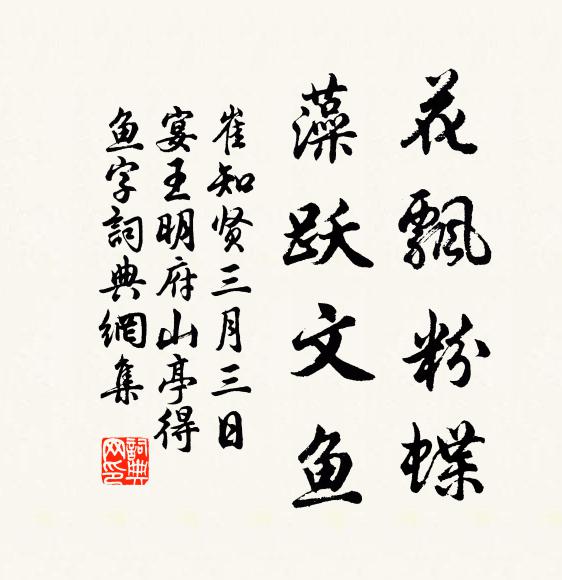 花飄粉蝶
藻跃文鱼
崔知贤三月三日
宴王明府山亭得
鱼字詞典網集
詞典
网印